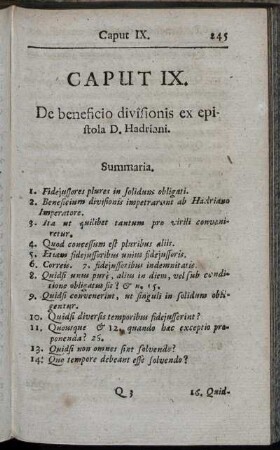 Caput IX. 245
CAPUT IX.
De beneficio divisionis ex epi-
stola D. Hadriani.
Summaria.
1. Fidejussores plures in solidum obligati.
2. Beneficium divisionis impetrarunt ab Hadriano
Imperatore.
3. Ita ut quilibet tantum pro virili conveni-
retur.
4. Quod concessum est pluribus aliis.
5. Etiam fidejussoribus unius fidejussoris.
6. Correis. 7. fidejussoribus indemnitatis.
8. Quidsi unus puri, alius in diem, vel sub condi-
tione obligatus sit? & n. 15.
9. Quidsi convenerint, ut singuli in solidum obli-
gentur.
10. Quidsi diversis temporibus fidejusserint?
11. Quousque & 12. quando hac exceptio pro-
ponenda? 26.
13. Quidsi non omnes sint solvendo?
14. Quo tempore debeant esse solvendo?
Q 3 16. Quid-